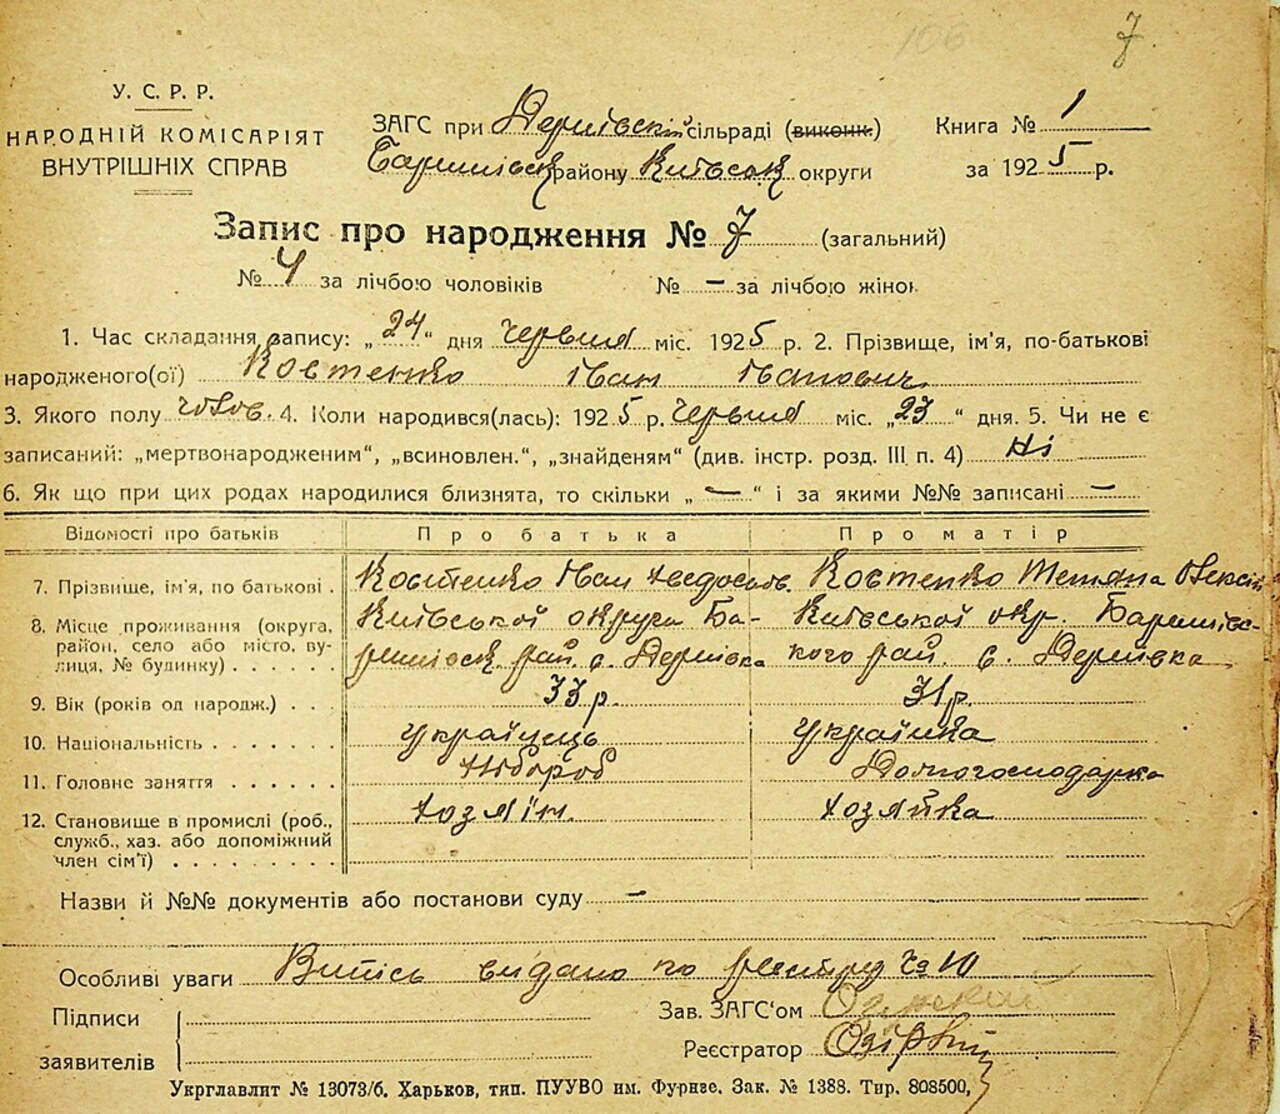 106 7
У. С. Р. Р.
НАРОДНІЙ КОМІСАРІЯТ
ВНУТРІШНІХ СПРАВ
ЗАГС при Дернівській сільраді (виконк.) Книга № 1
Баришівськ району Київськ округи за 1925 р.
Запис про народження № 7 (загальний)
№ 4 за лічбою чоловіків № – за лічбою жінок
1. Час складання запису: „24“ дня червня міс. 1925 р. 2. Прізвище, ім'я, по-батькові
народженого(ої) Костенко Іван Іванович
3. Якого полу чолов. 4. Коли народився(лась): 1925 р. червня міс. „23“ дня. 5. Чи не є
записаний: „мертвонародженим“, „всиновлен.“, „знайденям“ (див. інстр. розд. III п. 4) Ні
6. Як що при цих родах народилися близнята, то скільки „ – “ і за якими №№ записані –
Відомості про батьків Про батька Про матір
7. Прізвище, ім'я, по батькові . Костенко Іван Костенко Тетяна Олексі
8. Місце проживання (округа, Київської округи Ба- Київської окр. Баришівс-
район, село або місто, ву- ришівськ рай. с. Дернівка кого рай. с. Дернівка
лиця, № будинку) . . . . . .
9. Вік (років од народж.) . . . 33 р. 31 р.
10. Національність . . . . . . . українець українка
11. Головне заняття . . . . . . хлібороб Домогосподарка
12. Становище в промислі (роб., хозяїн. хозяйка
служб., хаз. або допоміжний
член сім'ї) . . . . . . . . .
Назви й №№ документів або постанови суду –
Особливі уваги Випись видано по реєстру № 10
Підписи Зав. ЗАГС'ом
заявителів Реєстратор
Укрглавлит № 13073/б. Харьков, тип. ПУУВО им. Фрунзе. Зак. № 1388. Тир. 808500,